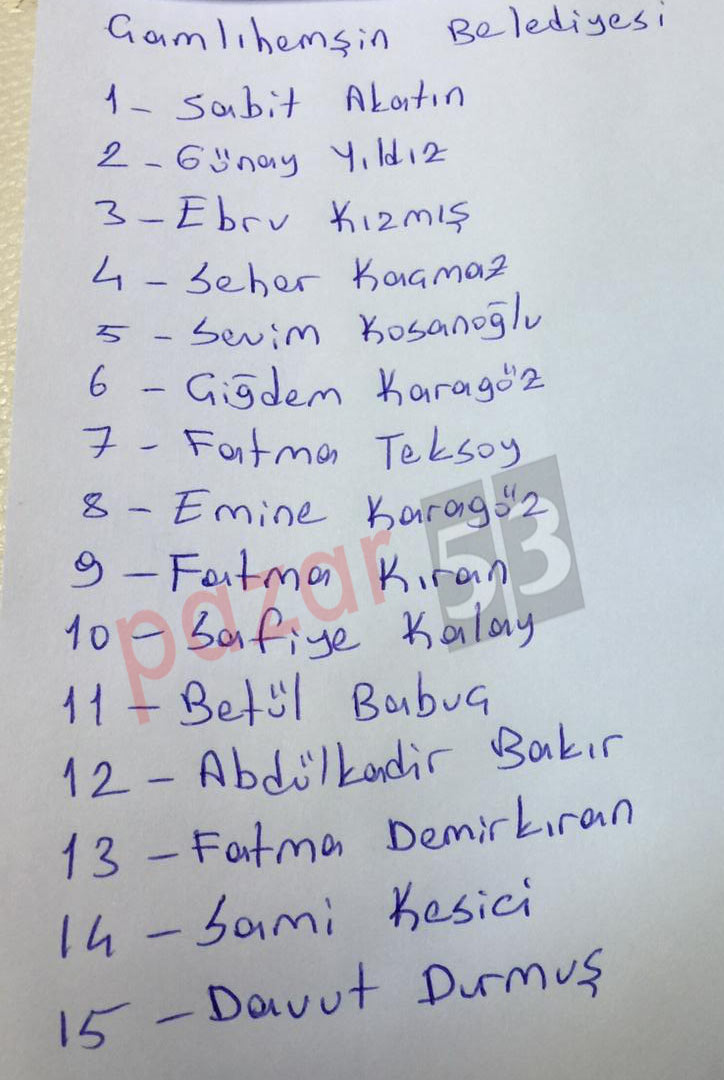 Çamlıhemşin Belediyesi
1- Sabit Akatın
2- Günay Yıldız
3- Ebru Kızmış
4- Seher Kaçmaz
5- Sevim Kosanoğlu
6- Çiğdem Karagöz
7- Fatma Teksoy
8- Emine Karagöz
9- Fatma Kıran
10- Safiye Kalay
11- Betül Babuç
12- Abdülkadir Bakır
13- Fatma Demirkıran
14- Sami Kesici
15- Davut Durmuş
pazar 53